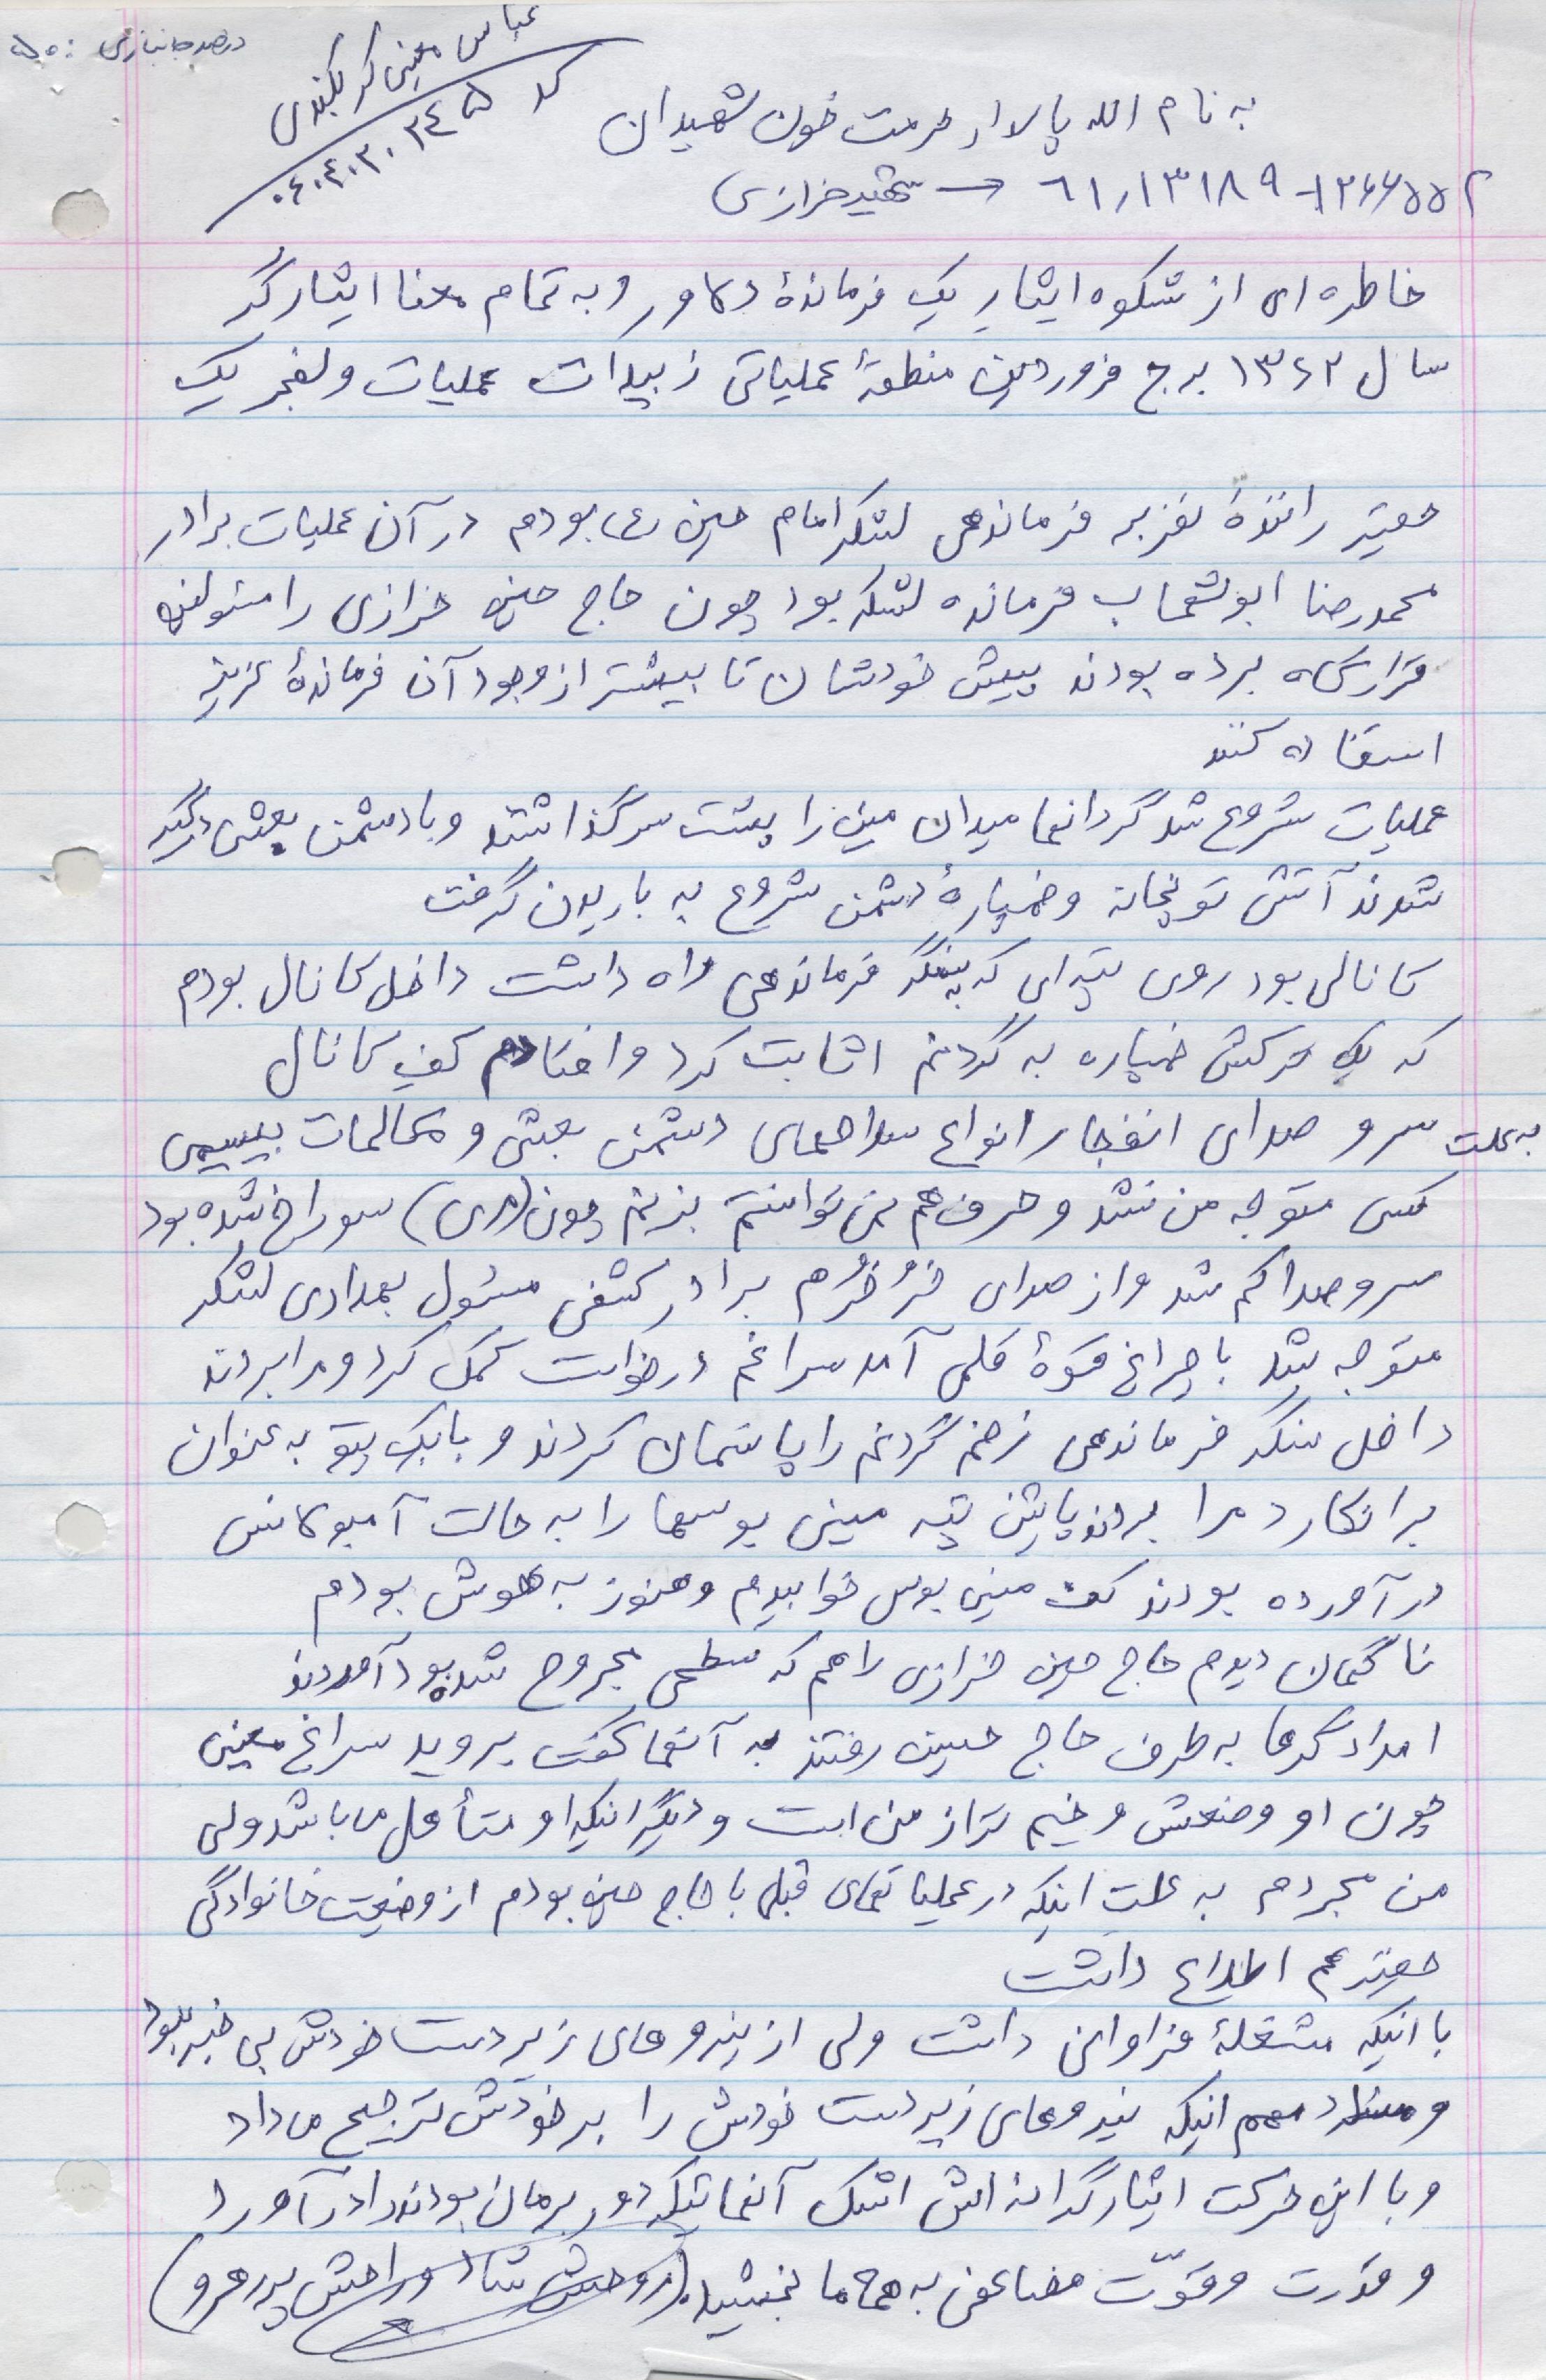 درصد جانبازی: ۵۰
عباس معینی کربکندی
کد ۰۴۰۴۰۳۰۳۴۵
به نام الله پاسدار حرمت خون شهیدان
۱۳۶۶۵۵۲-۶۱٫۱۳۱۸۹ → شهید خرازی
خاطره‌ای از شکوه ایثار یک فرماندهٔ دلاور و به تمام معنا ایثارگر
سال ۱۳۶۲ برج فروردین منطقهٔ عملیاتی زبیدات عملیات ولفجر یک
حقیر رانندهٔ نفربر فرماندهی لشکر امام حسین (ع) بودم در آن عملیات برادر
محمدرضا ابوشهاب فرمانده لشکر بود چون حاج حسین خرازی را مسئولین
قرارگاه برده بودند پیش خودشان تا بیشتر از وجود آن فرماندهٔ عزیز
استفاده کنند
عملیات شروع شد گردانها میدان مین را پشت سر گذاشتند و با دشمن بعثی درگیر
شدند آتش توپخانه و خمپارهٔ دشمن شروع به باریدن گرفت
کانالی بود روی تپه‌ای که به سنگر فرماندهی راه داشت داخل کانال بودم
که یک ترکش خمپاره به گردنم اثابت کرد و افتادم کف کانال
به علت سر و صدای انفجار انواع سلاحهای دشمن بعثی و مکالمات بیسیمی
کسی متوجه من نشد و حرف هم نمی‌توانستم بزنم چون (مری) سوراخ شده بود
سر و صدا کم شد و از صدای خُرخُرم برادر کشفی مسئول بهداری لشکر
متوجه شد با چراغ قوهٔ قلمی آمد سراغم درخواست کمک کرد و مرا بردند
داخل سنگر فرماندهی زخم گردنم را پانسمان کردند و با یک پتو به عنوان
برانکارد مرا بردند پائین تپه مینی بوسها را به حالت آمبولانس
در آورده بودند کف مینی بوس خوابیدم و هنوز به هوش بودم
ناگهان دیدم حاج حسین خرازی را هم که سطحی مجروح شده بود آوردند
امدادگرها به طرف حاج حسین رفتند به آنها گفت بروید سراغ معینی
چون او وضعش وخیم تر از من است و دیگر اینکه او متأهل می‌باشد ولی
من مجردم به علت اینکه در عملیاتهای قبلی با حاج حسین بودم از وضعیت خانوادگی
حقیر هم اطلاع داشت
با اینکه مشغلهٔ فراوانی داشت ولی از نیروهای زیر دست خودش بی خبر نبود
و مهم اینکه نیروهای زیر دست خودش را بر خودش ترجیح می‌داد
و با این حرکت ایثارگرانه‌اش اشک آنهائیکه دور برمان بودند را در آورد
و قدرت و قوّت مضاعفی به همهٔ ما بخشید. (روحش شاد و راهش پر رهرو)